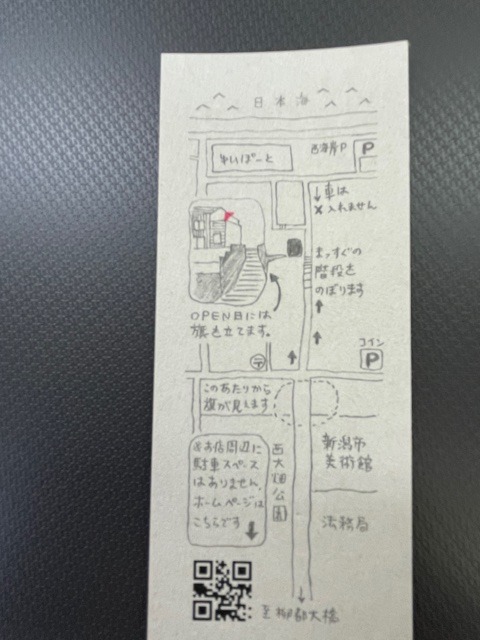 日本海
ゆいぽーと
西海岸P
P
↓車は
×入れません
まっすぐの
階段を
のぼります
OPEN日には
旗を立てます。
コイン
P
〒
このあたりから
旗が見えます
※お店周辺に
駐車スペース
はありません。
ホームページは
こちらです
西大畑公園
新潟市
美術館
法務局
至柳都大橋